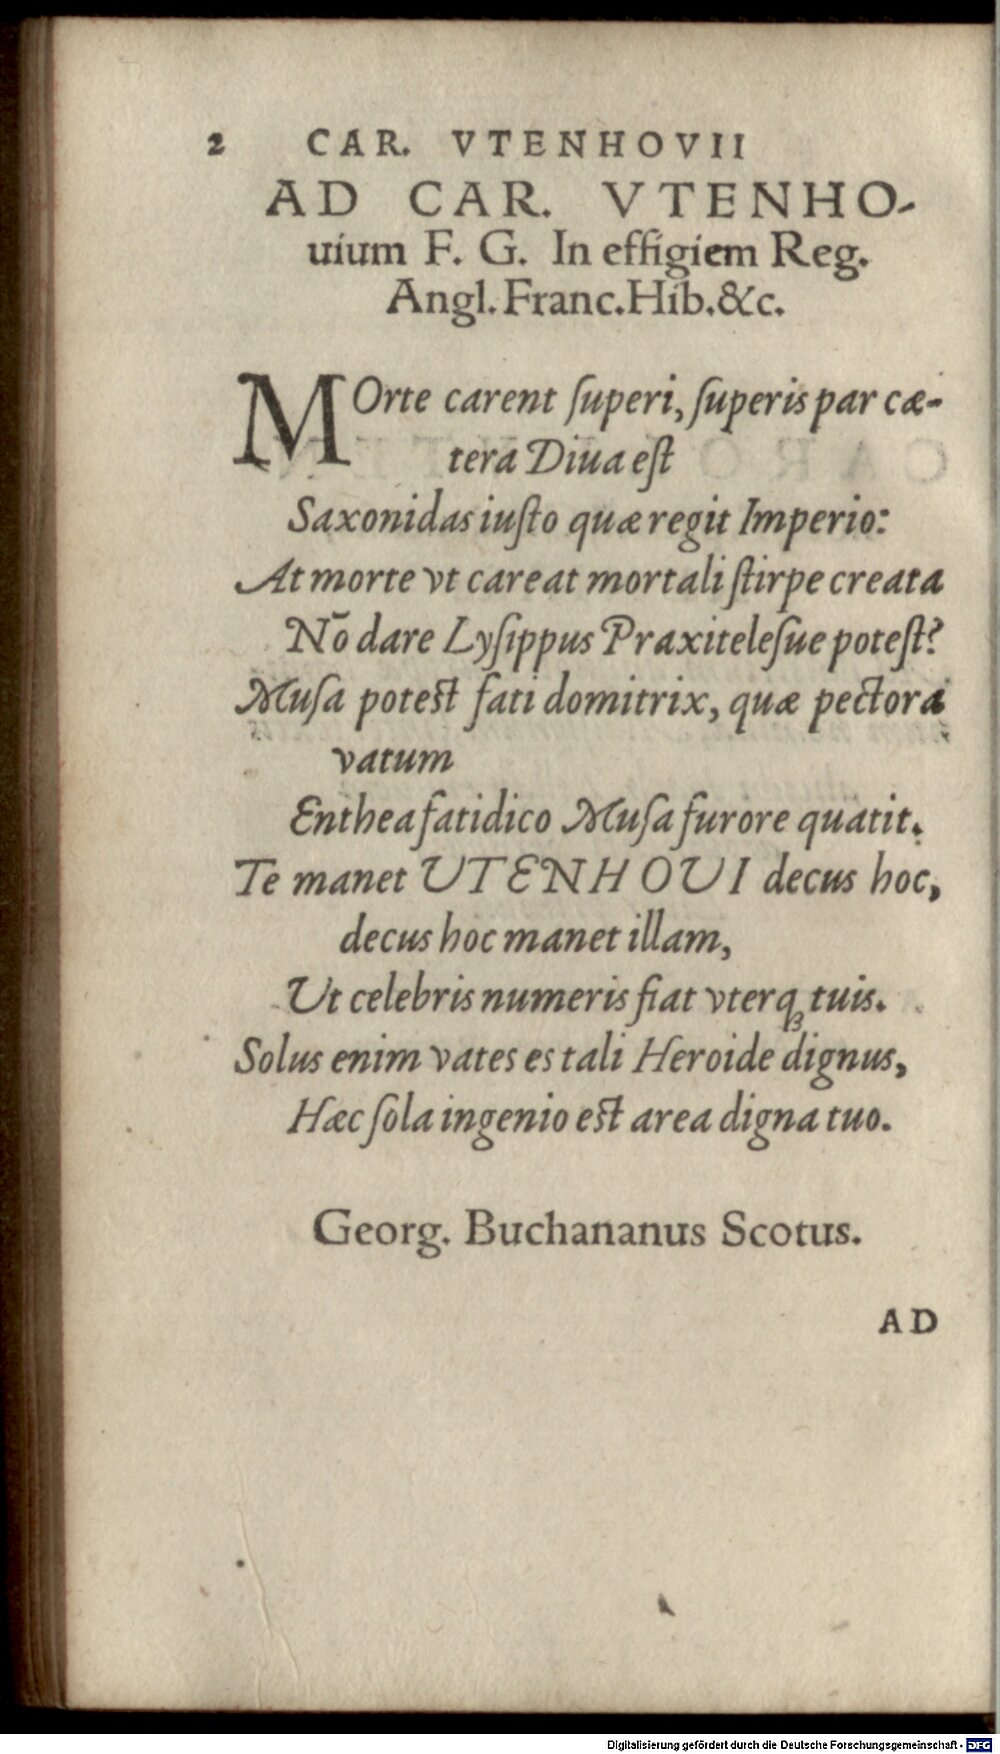 2 CAR. VTENHOVII
AD CAR. VTENHO-
uium F. G. In effigiem Reg.
Angl. Franc. Hib. &c.
MOrte carent ſuperi, ſuperis par cæ-
tera Diua eſt
Saxonidas iuſto quæ regit Imperio:
At morte vt careat mortali ſtirpe creata
Nō dare Lyſippus Praxiteleſue poteſt?
Muſa poteſt fati domitrix, quæ pectora
vatum
Enthea fatidico Muſa furore quatit.
Te manet UTENHOUI decus hoc,
decus hoc manet illam,
Ut celebris numeris fiat vterqꝫ tuis.
Solus enim vates es tali Heroide dignus,
Hæc ſola ingenio eſt area digna tuo.
Georg. Buchananus Scotus.
AD
Digitalisierung gefördert durch die Deutsche Forschungsgemeinschaft - DFG